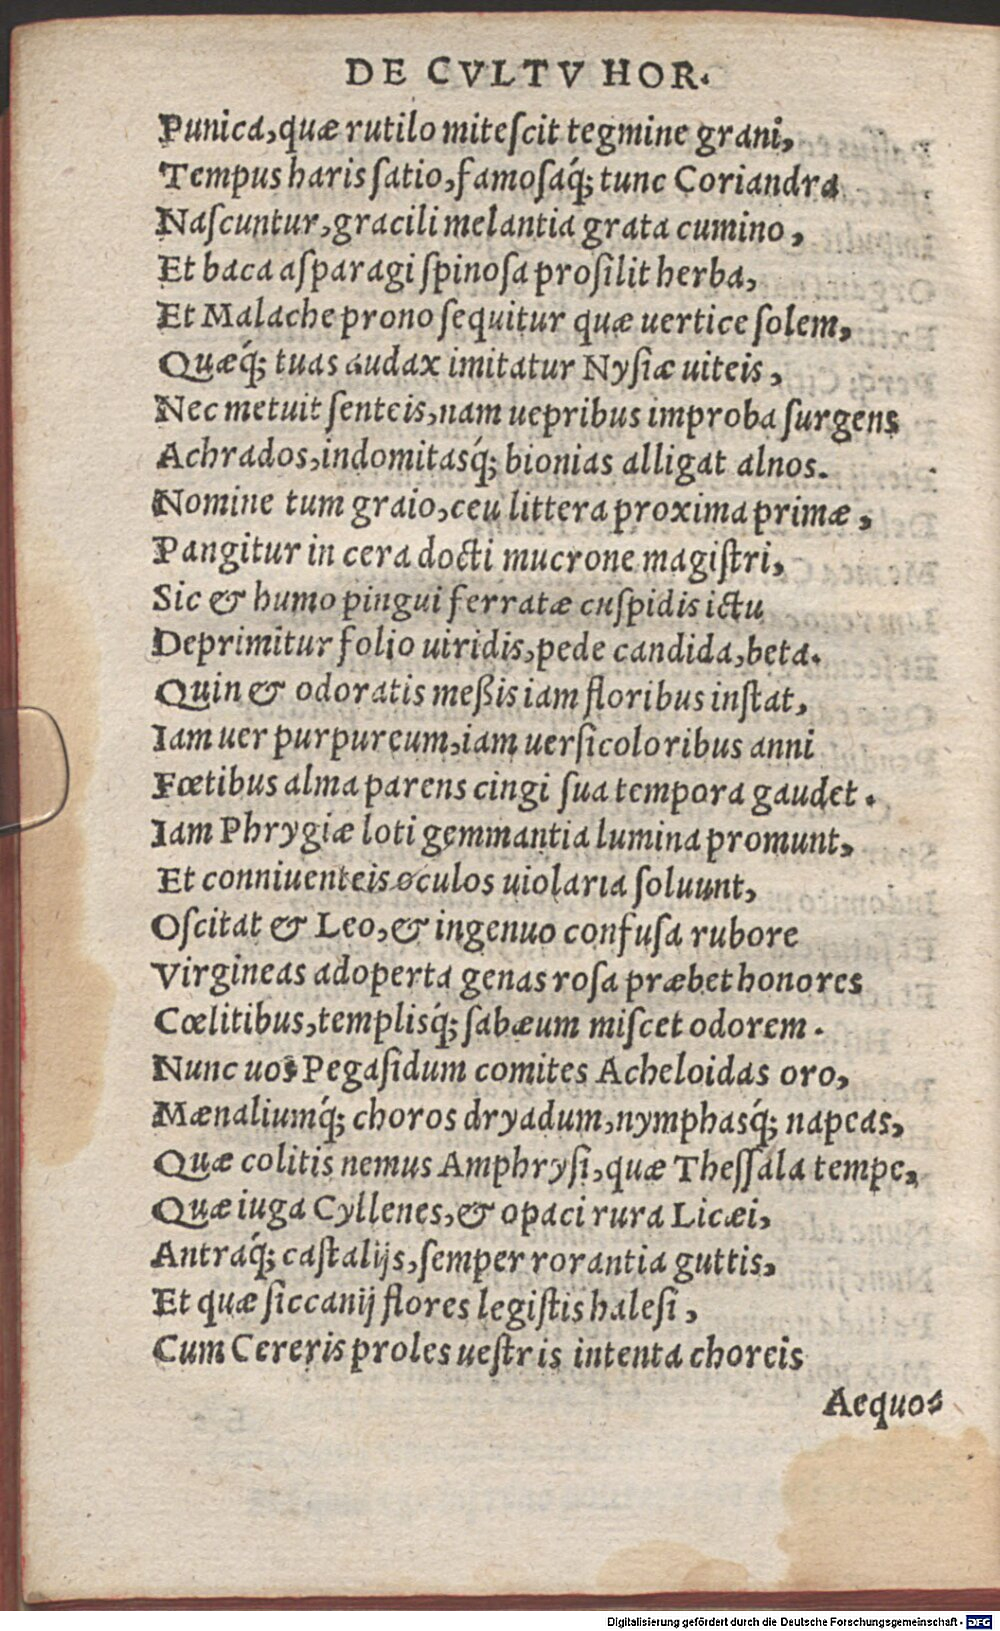 DE CVLTV HOR.
Punica, quæ rutilo mitescit tegmine grani,
Tempus haris satio, famosaq́; tunc Coriandra
Nascuntur, gracili melantia grata cumino,
Et baca asparagi spinosa prosilit herba,
Et Malache prono sequitur quæ uertice solem,
Quæq́; tuas audax imitatur Nysiæ uiteis,
Nec metuit senteis, nam uepribus improba surgens
Achrados, indomitasq́; bionias alligat alnos.
Nomine tum graio, ceu littera proxima primæ,
Pangitur in cera docti mucrone magistri,
Sic & humo pingui ferratæ cuspidis ictu
Deprimitur folio uiridis, pede candida, beta.
Quin & odoratis meßis iam floribus instat,
Iam uer purpureum, iam uersicoloribus anni
Fœtibus alma parens cingi sua tempora gaudet.
Iam Phrygiæ loti gemmantia lumina promunt,
Et conniuenteis oculos uiolaria soluunt,
Oscitat & Leo, & ingenuo confusa rubore
Virgineas adoperta genas rosa præbet honores
Cœlitibus, templisq́; sabæum miscet odorem.
Nunc uos Pegasidum comites Acheloidas oro,
Mænaliumq́; choros dryadum, nymphasq́; napeas,
Quæ colitis nemus Amphrysi, quæ Thessala tempe,
Quæ iuga Cyllenes, & opaci rura Licæi,
Antraq́; castalijs, semper rorantia guttis,
Et quæ siccanij flores legistis halesi,
Cum Cereris proles uestris intenta choreis
Aequos
Digitalisierung gefördert durch die Deutsche Forschungsgemeinschaft - DFG